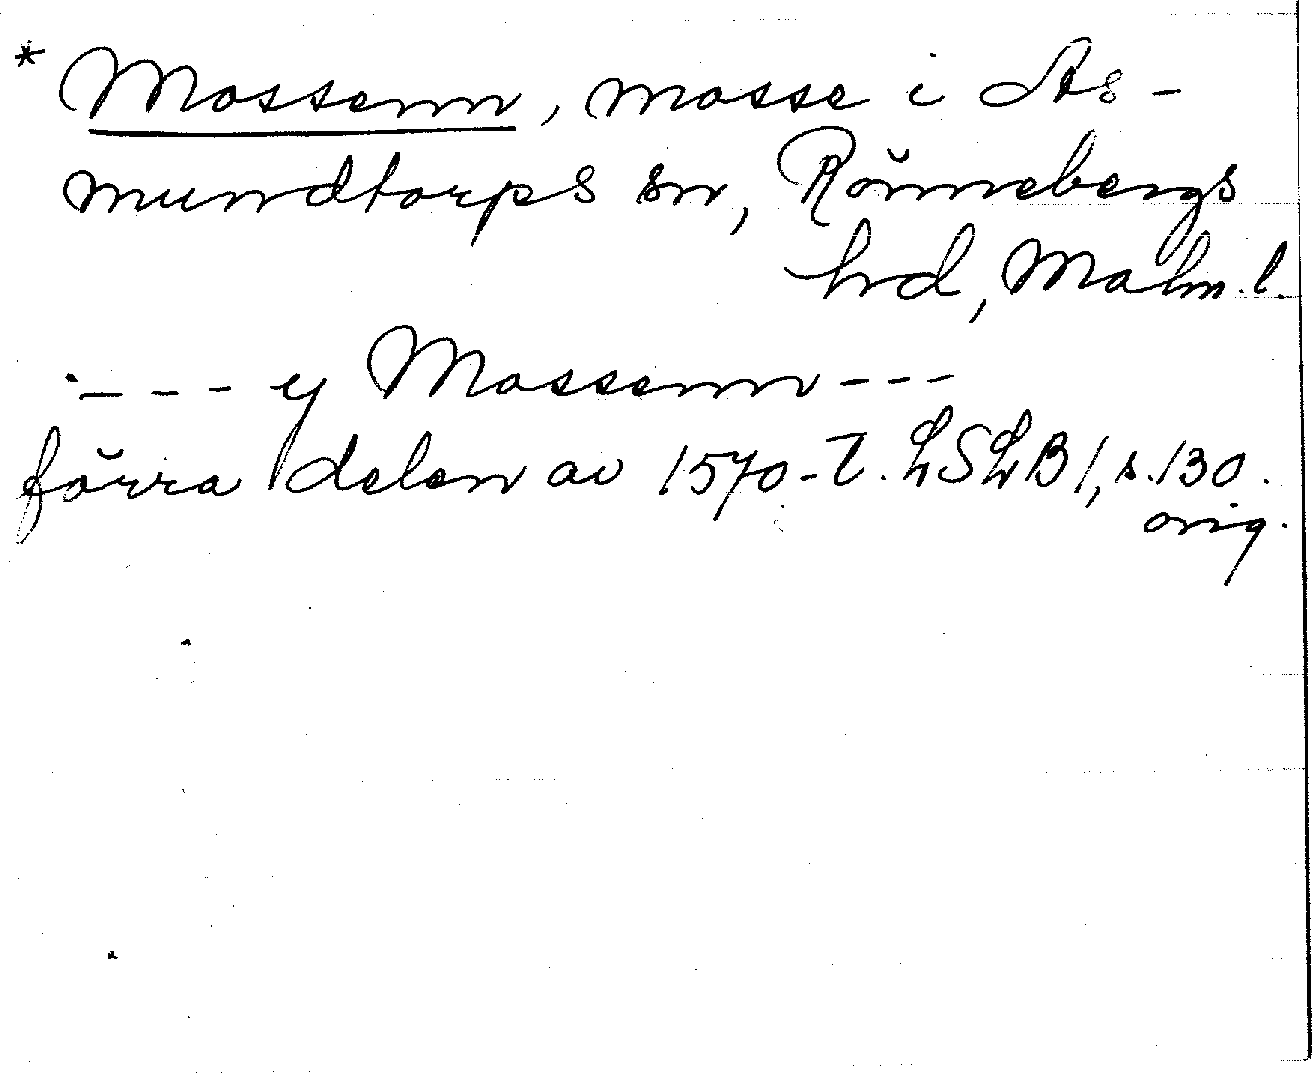 * Mossenn, mosse i As-
mundtorps sn, Rönnebergs
hrd, Malm. l.
- - - y Mossenn - - -
förra delen av 1570-t. LSLB 1, s. 130.
orig.